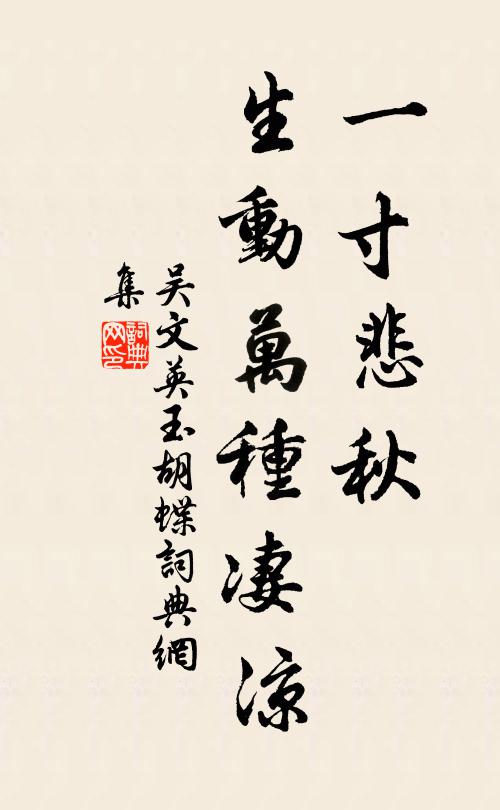 一寸悲秋
生動萬種淒涼
吳文英玉胡蝶詞典網
集
詞典
网印